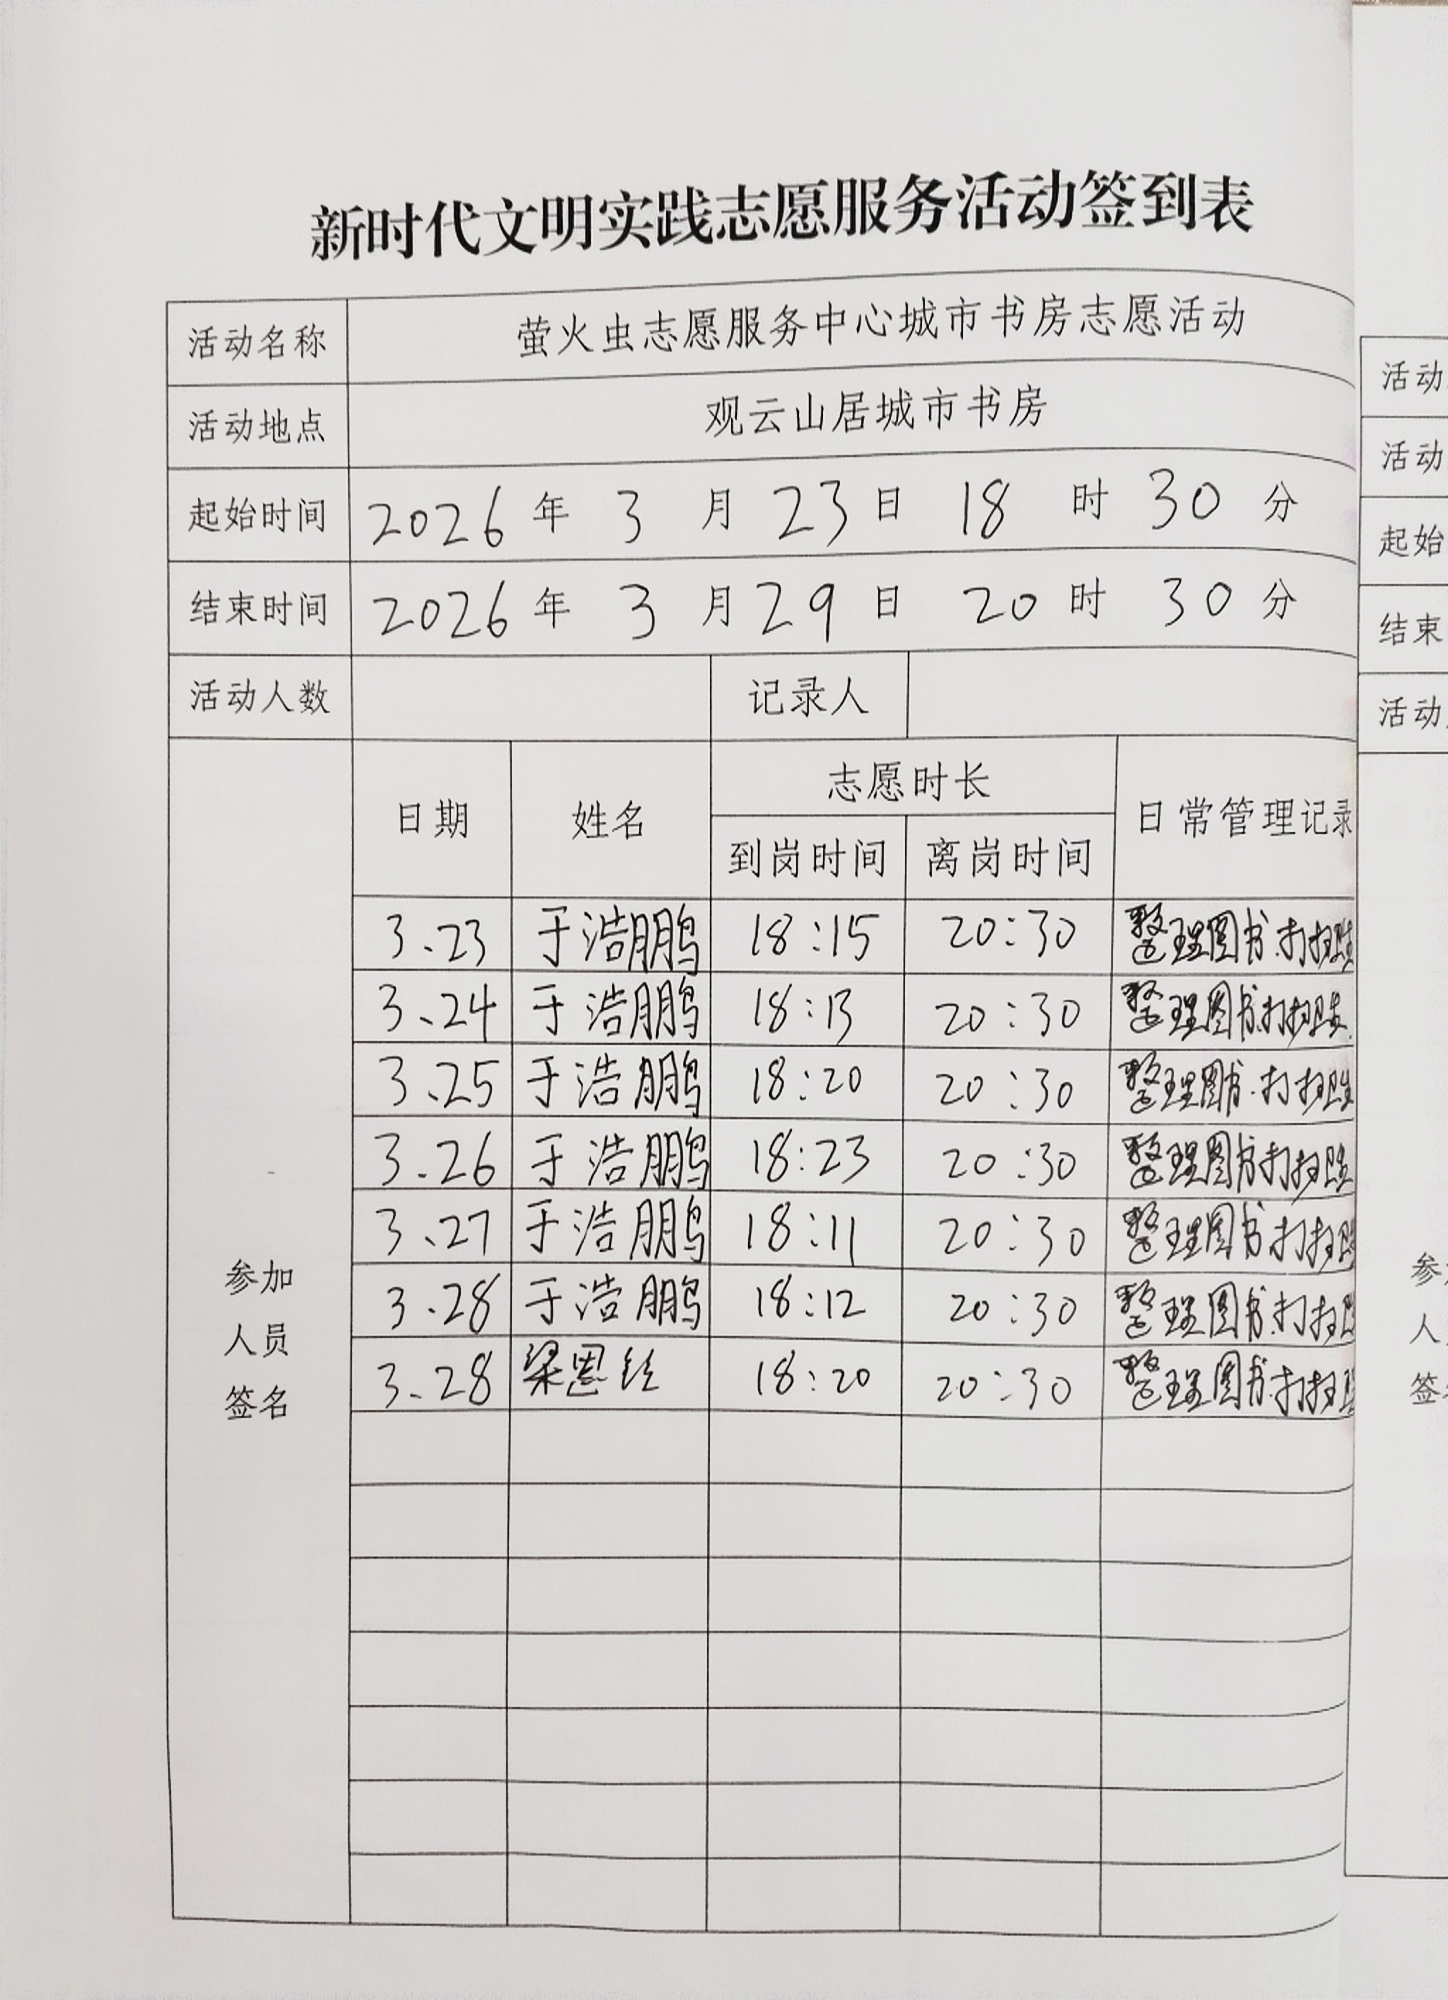 新时代文明实践志愿服务活动签到表
活动名称 萤火虫志愿服务中心城市书房志愿活动
活动地点 观云山居城市书房
起始时间 2026 年 3 月 23 日 18 时 30 分
结束时间 2026 年 3 月 29 日 20 时 30 分
活动人数 记录人
日期 姓名 志愿时长 日常管理记录
到岗时间 离岗时间
3.23 于浩鹏 18:15 20:30 整理图书.打扫
3.24 于浩鹏 18:13 20:30 整理图书.打扫
3.25 于浩鹏 18:20 20:30 整理图书.打扫
3.26 于浩鹏 18:23 20:30 整理图书打扫
3.27 于浩鹏 18:11 20:30 整理图书打扫
3.28 于浩鹏 18:12 20:30 整理图书.打扫
3.28 梁恩 18:20 20:30 整理图书.打扫
参加
人员
签名
活动
活动
起始
结束
活动
参
人
签